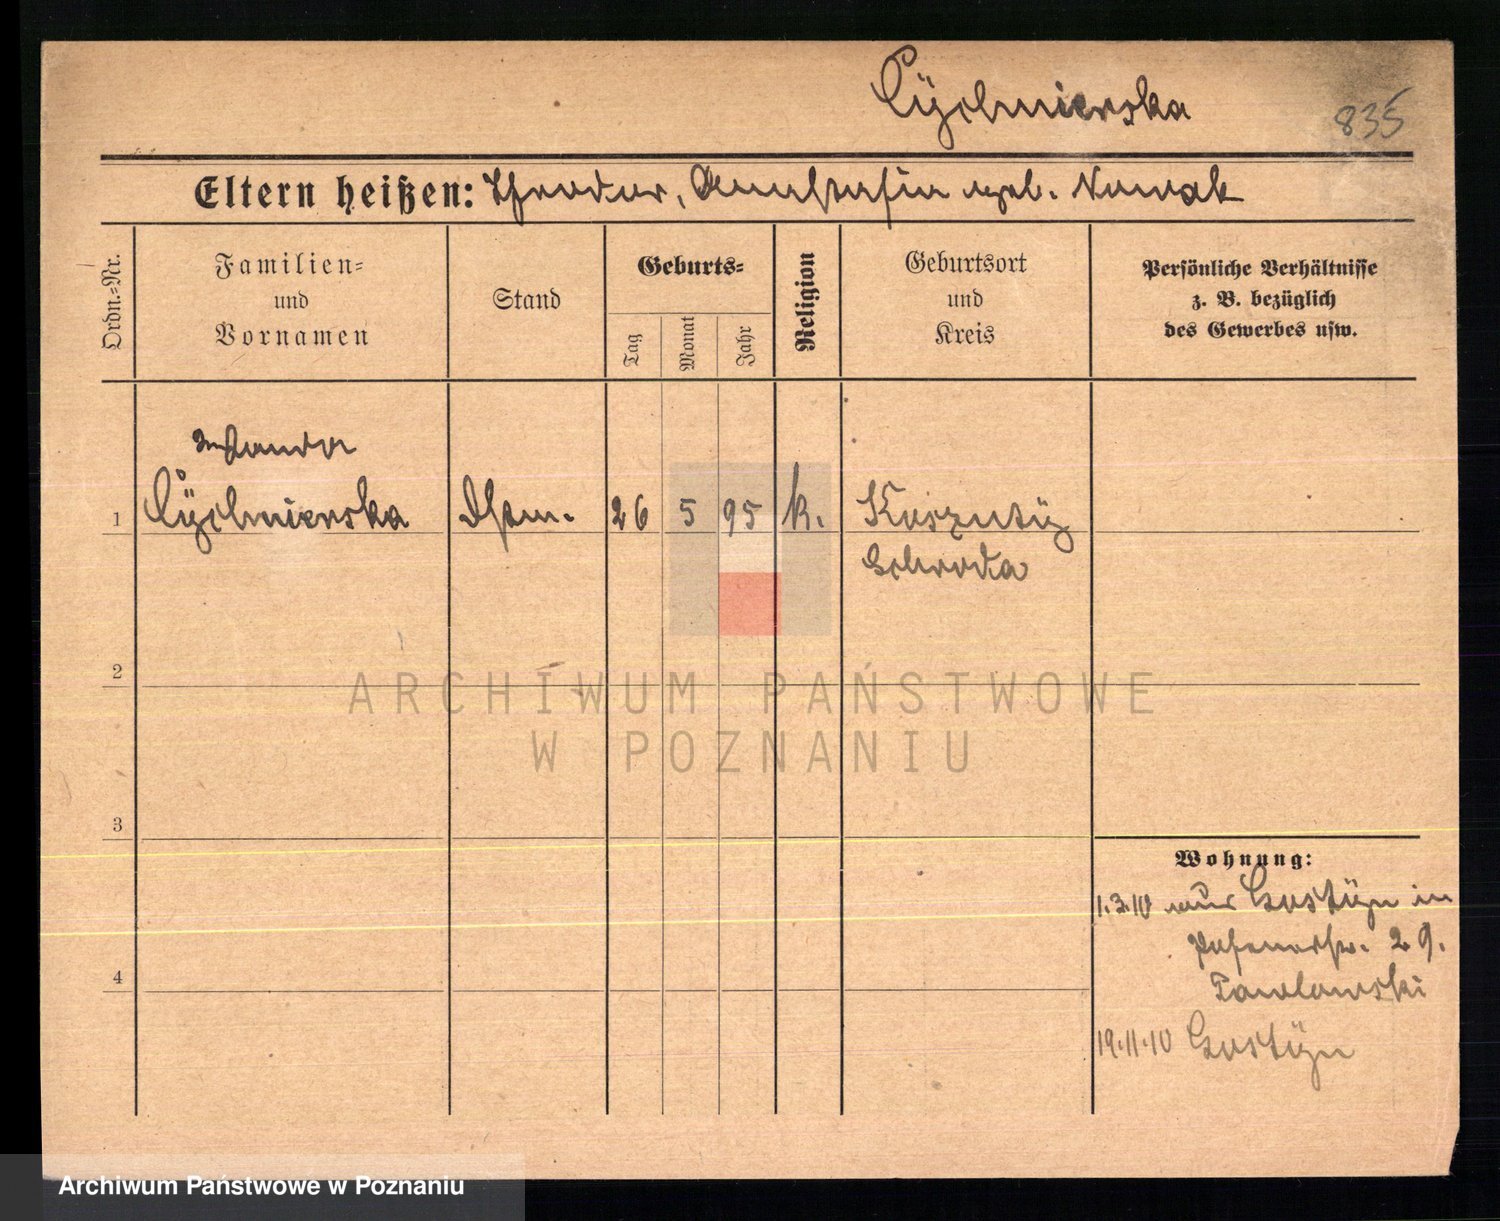 Cÿchnierska
835
Eltern heißen: Theodor, Anastasia geb. Nowak
Ordn.=Nr.
Familien=
und
Vornamen
Stand
Geburts=
Tag
Monat
Jahr
Religion
Geburtsort
und
Kreis
Persönliche Verhältnisse
z. B. bezüglich
des Gewerbes usw.
Wanda
1 Cÿchnierska 26 5 95 k. Koszutÿ
Schroda
2
ARCHIWUM PAŃSTWOWE
W POZNANIU
3
Wohnung:
1.3.10 aus Gostÿn in
Posenerstr. 29.
Pawlowski
4
19.11.10 Gostÿn
Archiwum Państwowe w Poznaniu